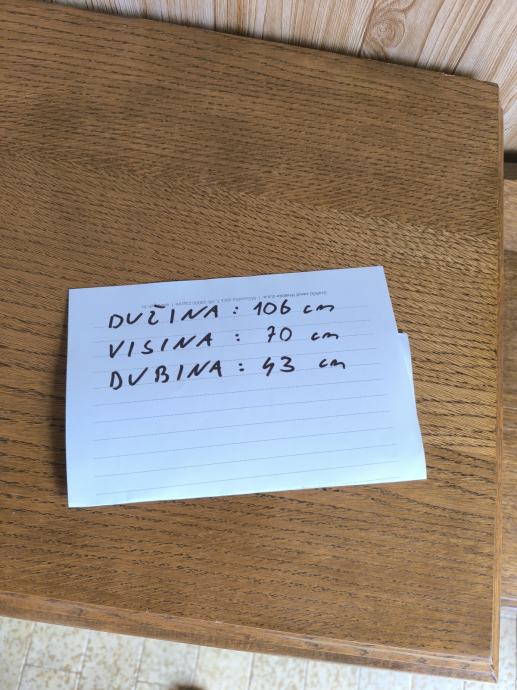 DUŽINA : 106 cm
VISINA : 70 cm
DUBINA : 43 cm